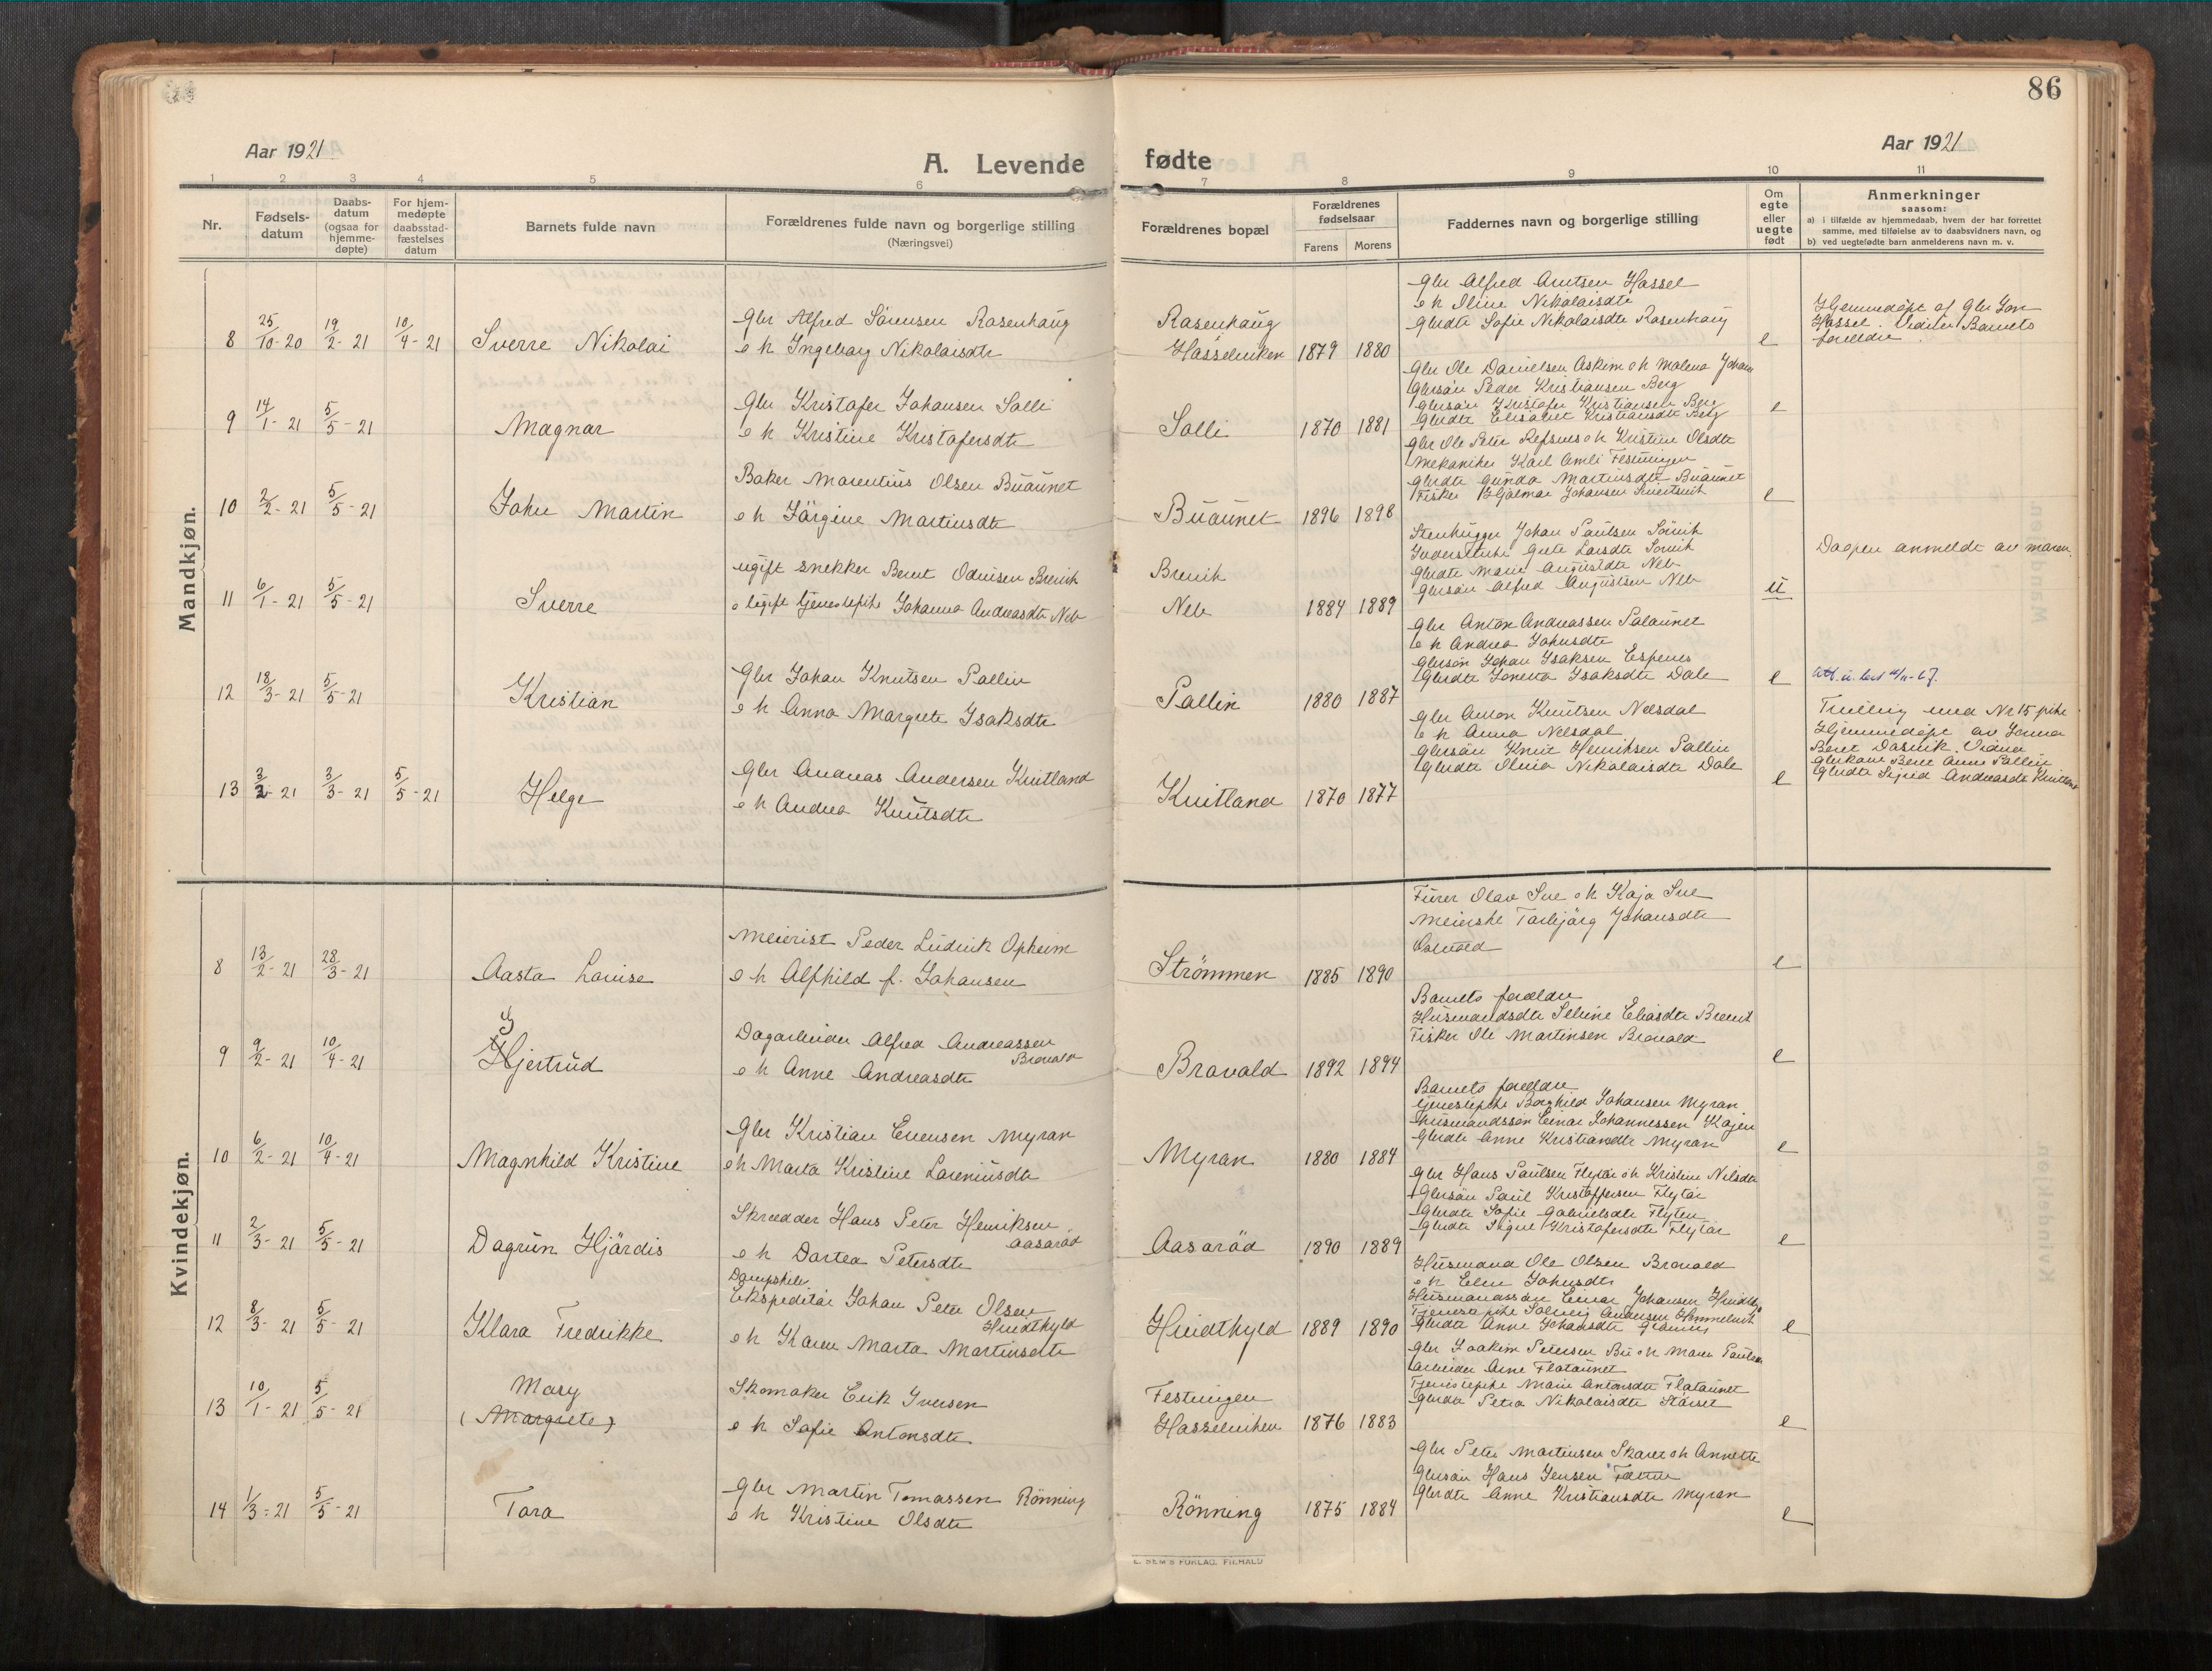 86
Aar 1921
A. Levende
fødte
Aar 1921
1 2 3 4 5 6 7 8 9 10 11
Nr.
Fødsels-
datum
Daabs-
datum
(ogsaa for
hjemme-
døpte)
For hjem-
medøpte
daabsstad-
fæstelses
datum
Barnets fulde navn
Forældrenes fulde navn og borgerlige stilling
(Næringsvei)
Forældrenes bopæl
Forældrenes
fødselsaar
Farens
Morens
Faddernes navn og borgerlige stilling
Om
egte
eller
uegte
født
Anmerkninger
saasom:
a) i tilfælde av hjemmedaab, hvem der har forrettet
samme, med tilføielse av to daabsvidners navn, og
b) ved uegtefødte barn anmelderens navn m. v.
Mandkjøn.
8 25/10-20 19/2-21 10/4-21 Sverre Nikolai
Gbr Alfred Sørensen Rosenhaug
o h Ingeborg Nikolaisdtr
Rosenhaug
Hasselviken 1879 1880
Gbr Alfred Arntsen Hassel
o h Oline Nikolaisdtr
Gbrdtr Sofie Nikolaisdtr Rosenhaug
e
Hjemmedøpt af Gbr Jon
Hassel. Vidner Barnets
foreldre.
9 14/1-21 5/5-21 Magnar
Gbr Kristofer Johansen Solli
o h Kristine Kristofersdtr
Solli 1870 1881
Gbr Ole Danielsen Askim o h Malena Johan
Gbrsøn Peder Kristiansen Berg
Gbrsøn Kristofer Kristiansen Berg
Gbrdtr Elisabet Kristiansdtr Berg
e
10 2/2-21 5/5-21 John Martin
Baker Marentius Olsen Buaunet
o h Jørgine Martinsdtr
Buaunet 1896 1898
Gbr Ole Peter Refsnes o h Kristine Olsdtr
Mekaniker Karl Amli Festningen
Gbrdtr Gunda Martinsdtr Buaunet
Fisker Hjalmar Johansen
e
11 6/1-21 5/5-21 Sverre
ugift snekker Bernt Odinsen Brevik
o ugift tjenestepike Johanna Andreasdtr Neb
Brevik
Neb 1884 1889
Stenhugger Johan Paulsen Sørvik
Grete Larsdtr Sørvik
Gbrdtr Marie Augustdtr Neb
Gbrsøn Alfred Augustsen Neb
u
Daapen anmeldt av moren.
12 18/3-21 5/5-21 Kristian
Gbr Johan Knutsen Pallin
o h Anna Margrete Isaksdtr
Pallin 1880 1887
Gbr Anton Andreassen Salaunet
o h Andrea Johnsdtr
Gbrsøn Johan Isaksen Espenes
Gbrdtr Jonetta Isaksdtr Dale
e
13 3/2-21 3/3-21 5/5-21 Helge
Gbr Andreas Andersen Knutland
o h Andrea Knutsdtr
Knutland 1870 1877
Gbr Anton Knutsen Nelsdal
o h Anna Nelsdal
Gbrsøn Knut Henriksen Pallin
Gbrdtr Olivia Nikolaisdtr Dale
e
Tvilling med Nr 15 pike
Hjemmedøpt av Jonna
Beret Dasvik. Vidner
Gbrkone Beret Anna Pallin
Gbrdtr Sigrid Andreasdtr Knutland
Kvindekjøn.
8 13/2-21 28/3-21 Aasta Louise
Meierist Peder Ludvik Opheim
o h Alfhild f. Johansen
Strömmen 1885 1890
Furer Olav Sve o h Kaja Sve
Meierske Torbjørg Johansdtr
e
9 9/2-21 10/4-21 G Hjertrud
Dagarbeider Alfred Andreassen
Brovold
o h Anne Andreasdtr
Bravold 1892 1894
Barnets foreldre
Husmandsdtr Seline Eliasdtr
Fisker Ole Martinsen Brovold
e
10 6/2-21 10/4-21 Magnhild Kristine
Gbr Kristian Evensen Myran
o h Marta Kristine Lareniusdtr
Myran 1880 1884
Barnets foreldre
tjenestepike Borghild Johansen Myran
Husmandssøn Einar Johannessen Kojen
Gbrdtr Anne Kristiandtr Myran
e
11 2/3-21 5/5-21 Dagrun Hjördis
Skrædder Hans Peter Henriksen
Aasarød
o h Dortea Petersdtr
Aasaröd 1890 1889
Gbr Hans Paulsen Flytår o h Kristine Nilsdtr
Gbrsøn Paul Kristoffersen Flytår
Gbrdtr Sofie Gabrielsdtr Flyten
Gbrdtr Signe Kristofersdtr Flytår
e
12 8/3-21 5/5-21 Klara Fredrikke
Dampskibs
Ekspeditör Johan Peter Olsen
Hvidthyld
o h Karen Marta Martinsdtr
Hvidthyld 1889 1890
Husmand Ole Olsen Brovold
o h Elen Johnsdtr
Husmandssøn Einar Johansen
Tjenestepike Solveig Andersen
Gbrdtr Anne Johansdtr
e
13 10/1-21 5/5-21 Mary
(Margrete)
Skomaker Erik Iversen
o h Sofie Antonsdtr
Festningen
Hasselviken 1876 1883
Gbr Joakim Petersen Bu o h Maren
Arbeider Arne Flataunet
Tjenestepike Marie Antonsdtr Flataunet
Gbrdtr Petra Nikolaisdtr
e
14 1/3-21 5/5-21 Tora
Gbr Martin Tomassen Rönning
o h Kristine Olsdtr
Rönning 1875 1884
Gbr Peter Martinsen Skaret o h Annette
Gbrsøn Hans Jensen
Gbrdtr Anne Kristiansdtr Myran
e
E. SEM'S FORLAG, FR.HALD